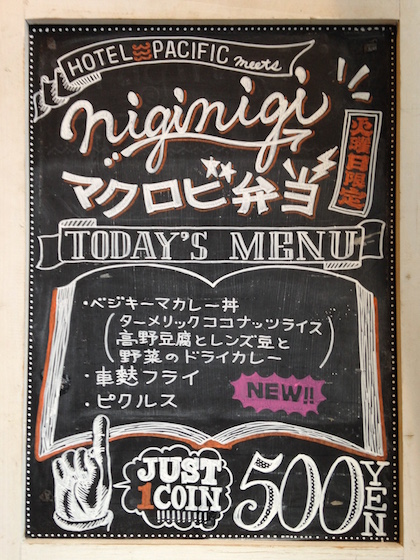 HOTEL PACIFIC meets
niginigi
火曜日限定
マクロビ弁当
TODAY'S MENU
・ベジキーマカレー丼
(ターメリックココナッツライス
高野豆腐とレンズ豆と
野菜のドライカレー)
・車麩フライ
・ピクルス
NEW!!
JUST
1 COIN
!!!!!!!!!!
500 YEN